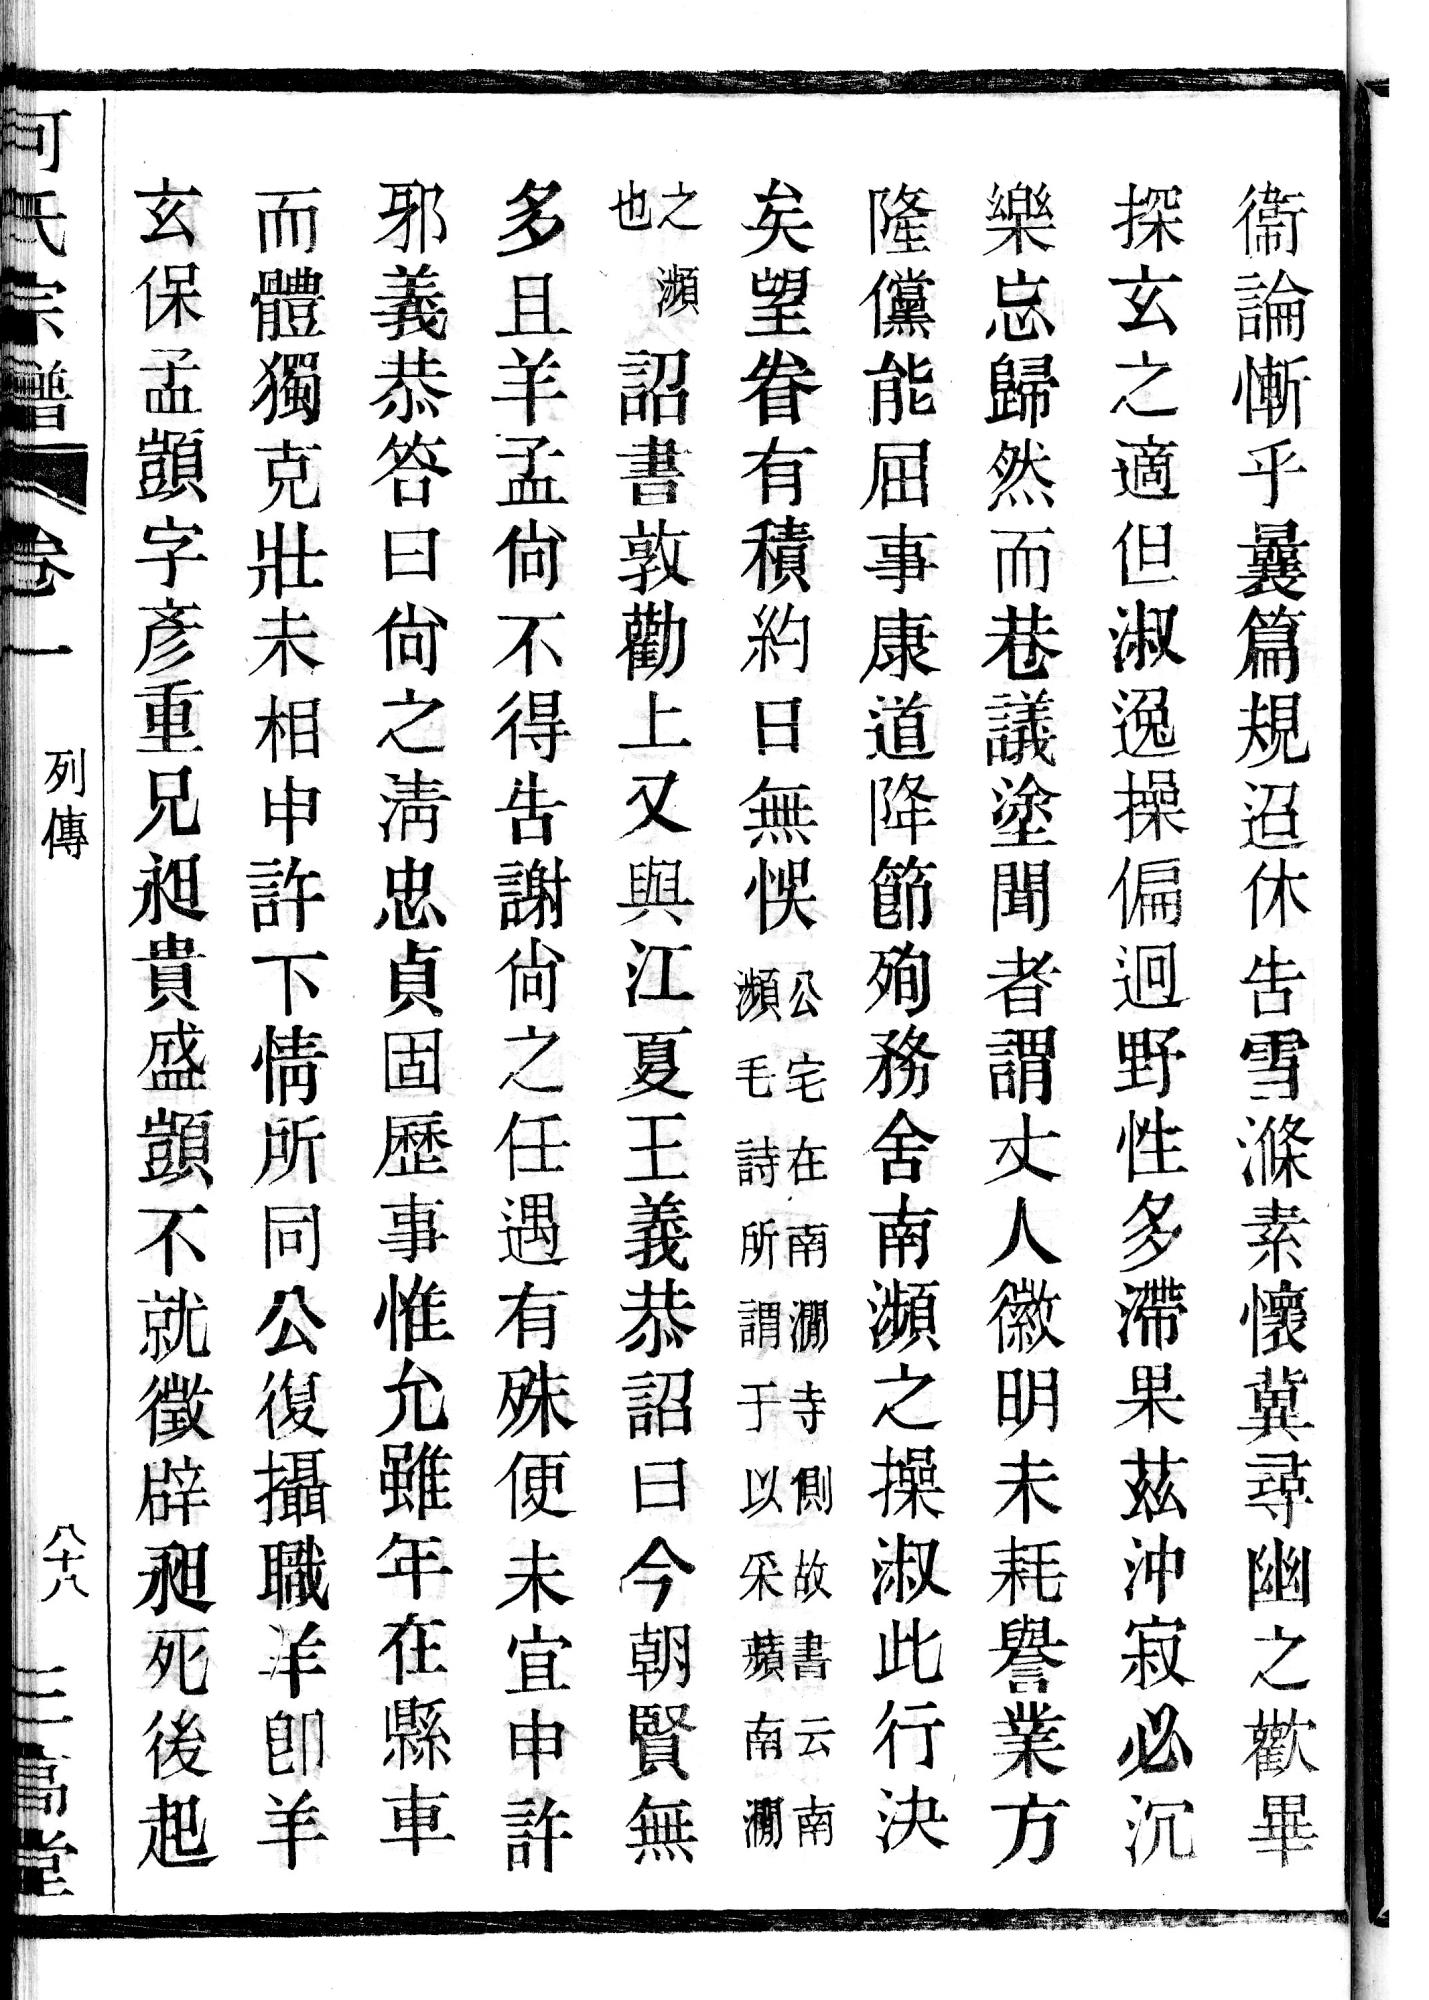 衞論慚乎曩篇規迢休告雪滌素懷冀尋幽之歡畢
探玄之適但淑逸操偏迥野性多滯果茲沖寂必沉
樂忘歸然而巷議塗聞者謂丈人徽明未耗譽業方
隆儻能屈事康道降節殉務舍南瀕之操淑此行決
矣望眷有積約日無悞
公宅在南澗寺側故書云南
瀕毛詩所謂于以采蘋南澗
之瀕
也
詔書敦勸上又與江夏王義恭詔曰今朝賢無
多且羊孟尙不得告謝尙之任遇有殊便未宜申許
邪義恭答曰尙之淸忠貞固歷事惟允雖年在縣車
而體獨克壯未相申許下情所同公復攝職羊卽羊
玄保孟顗字彥重兄昶貴盛顗不就徵辟昶死後起
何氏宗譜 卷一 列傳 八十八 三高堂